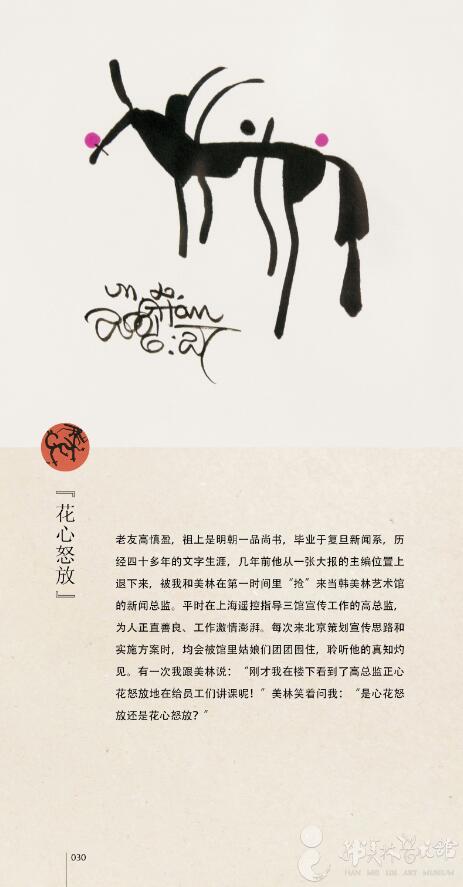 『花心怒放』
老友高慎盈，祖上是明朝一品尚书，毕业于复旦新闻系，历
经四十多年的文字生涯，几年前他从一张大报的主编位置上
退下来，被我和美林在第一时间里“抢”来当韩美林艺术馆
的新闻总监。平时在上海遥控指导三馆宣传工作的高总监，
为人正直善良、工作激情澎湃。每次来北京策划宣传思路和
实施方案时，均会被馆里姑娘们团团围住，聆听他的真知灼
见。有一次我跟美林说：“刚才我在楼下看到了高总监正心
花怒放地在给员工们讲课呢！”美林笑着问我：“是心花怒
放还是花心怒放？”
030
韩美林艺术馆
HAN MEI LIN ART MUSEUM